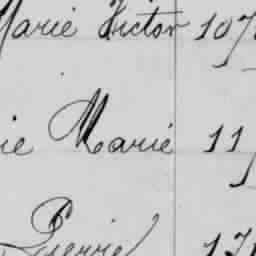 Marie Victor 107
ie Marie 11
Pierrie 17